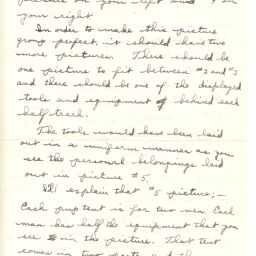 picture on your left and 4 on
your right
In order to make this picture
group perfect, it should have two
more pictures. There should be
one picture to fit between #2 and #3
and there should be one of the displayed
tools and equipment behind each
half track.
The tools would have been laid
out in a uniform manner as you
see the personal belongings laid
out in picture #5.
I'll explain that #5 picture;-
Each pup tent is for two men. Each
man has half the equipment that you
see in the picture. That tent
comes in two parts and the